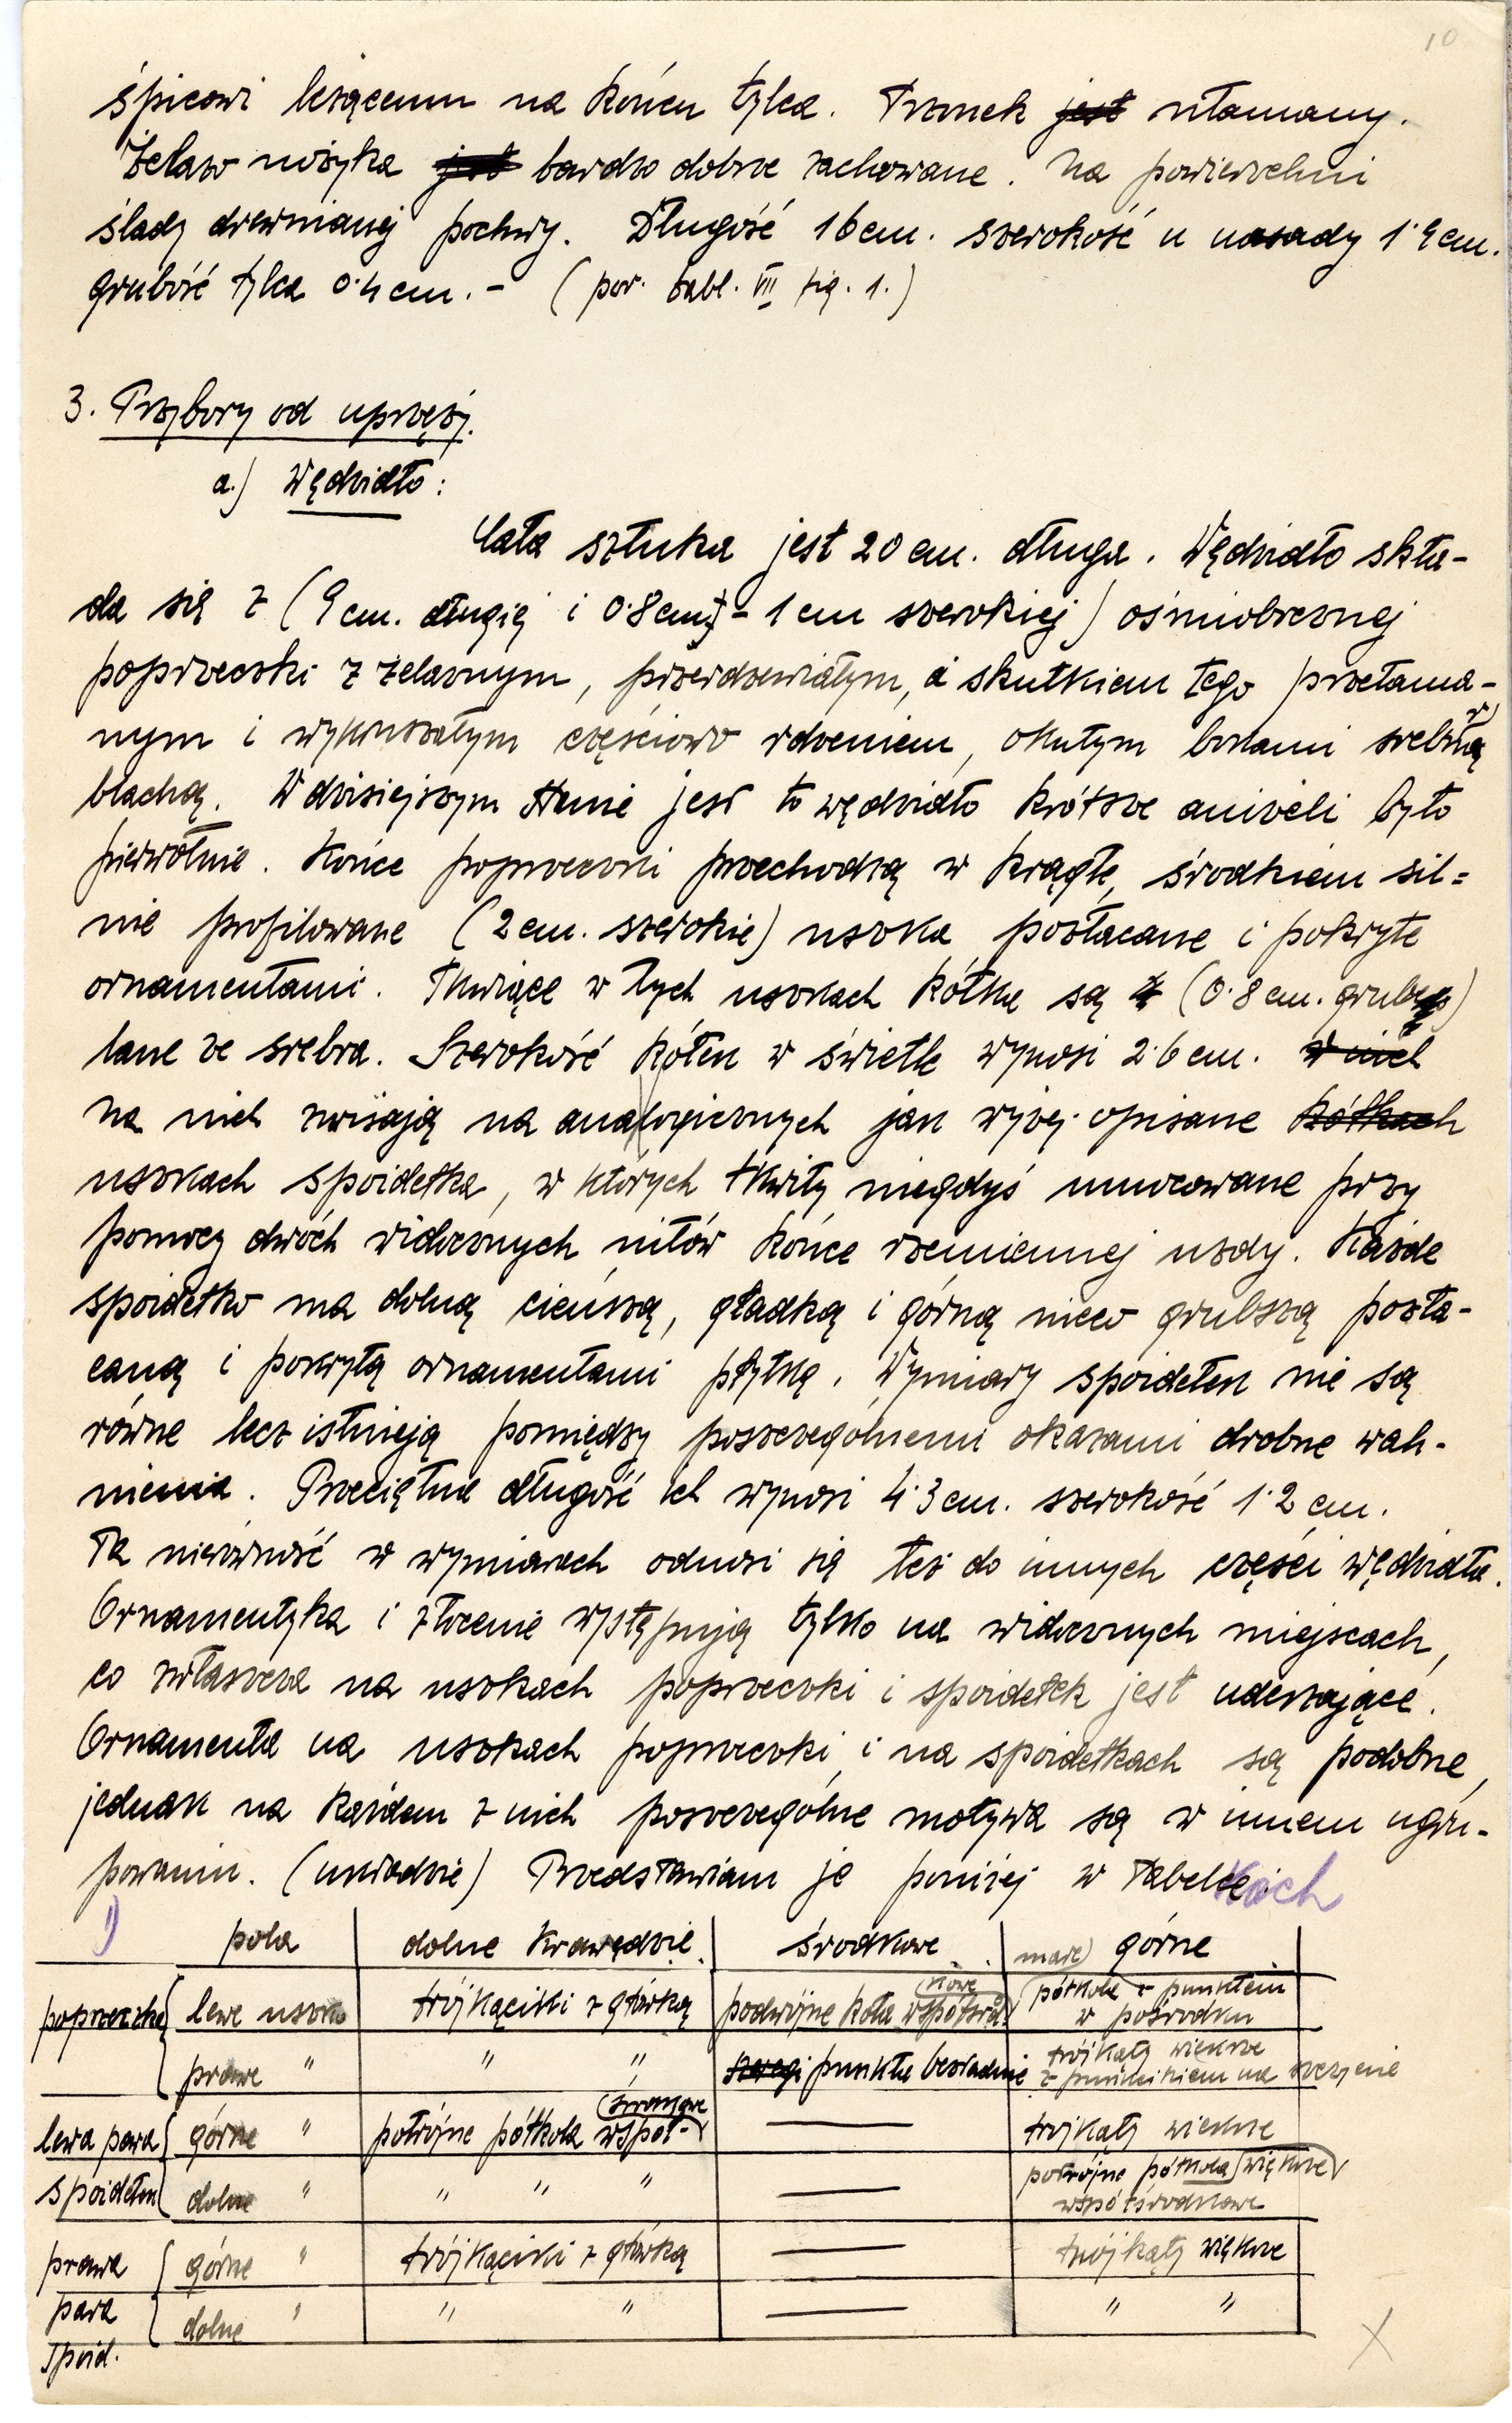 10
śpicowi leżącemu na końcu tylca. Trzonek jest ułamany.
Żelazo nożyka jest bardzo dobrze zachowane. Na powierzchni
ślady drewnianej pochwy. Długość 16 cm. szerokość u nasady 1·9 cm.
grubość tylca 0·4 cm. – (por. tabl. VII fig. 1.)
3. Przybory od uprzęży.
a.) Wędzidło:
Cała sztuka jest 20 cm. długa. Wędzidło skła-
da się z (9 cm. długiej i 0·8 cm. – 1 cm szerokiej) ośmiobocznej
poprzeczki z żelaznym, przerdzewiałym, a skutkiem tego przełama-
nym i wykruszałym częściowo rdzeniem, okutym bokami srebrną
blachą. W dzisiejszym stanie jest to wędzidło krótsze aniżeli było
pierwotnie. Końce poprzeczki przechodzą w krągłe, środkiem sil=
nie profilowane (2 cm. szerokie) uszka pozłacane i pokryte
ornamentami. Tkwiące w tych uszkach kółka są (0·8 cm. grube)
lane ze srebra. Szerokość kółek w świetle wynosi 2·6 cm. w nich
na nich zwisają na analogicznych jak wyżej opisane kółkach
uszkach spoidełka, w których tkwiły niegdyś umocowane przy
pomocy dwóch widocznych nitów końce rzemiennej uzdy. Każde
spoidełko ma dolną cieńszą, gładką i górną nieco grubszą pozła-
caną i pokrytą ornamentami płytkę. Wymiary spoidełek nie są
równe lecz istnieją pomiędzy poszczególnemi okazami drobne wah-
nienia. Przeciętna długość ich wynosi 4·3 cm. szerokość 1·2 cm.
Ta nierówność w wymiarach odnosi się też do innych części wędzidła.
Ornamentyka i złocenie występują tylko na widocznych miejscach,
co zwłaszcza na uszkach poprzeczki i spoidełek jest uderzające.
Ornamenta na uszkach poprzeczki i na spoidełkach są podobne,
jednak na każdem z nich poszczególne motywa są w innem ugru-
powaniu. (układzie) Przedstawiam je poniżej w tabelkach
1) pola dolne krawędzie środkowe małe górne
poprzeczka lewe uszko trójkąciki z gałką podwójne koła współśrodkowe półkola z punktem w pośrodku
prawe " " " szeregi punktu bezładnie trójkąty większe z punkcikiem na szczycie
lewa para spoidełek górne " potrójne półkola współśrodkowe — trójkąty większe
dolne " " " " — potrójne półkola większe współśrodkowe
prawa para spoid. górne " trójkąciki z gałką — trójkąty większe
dolne " " " — " "